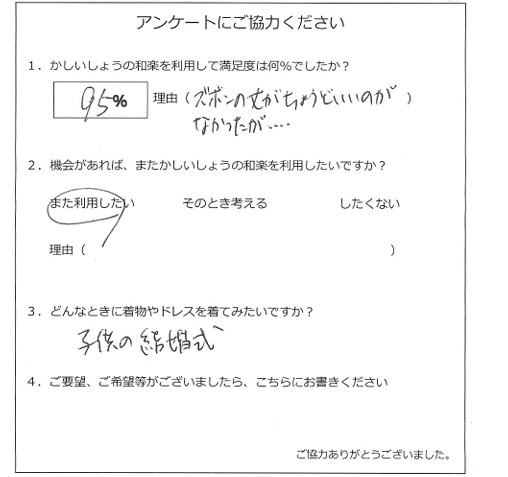 アンケートにご協力ください
1．かしいしょうの和楽を利用して満足度は何％でしたか？
95％ 理由（ズボンの丈がちょうどいいのが）
なかったが....
2．機会があれば、またかしいしょうの和楽を利用したいですか？
また利用したい そのとき考える したくない
理由（ ）
3．どんなときに着物やドレスを着てみたいですか？
子供の結婚式
4．ご要望、ご希望等がございましたら、こちらにお書きください
ご協力ありがとうございました。